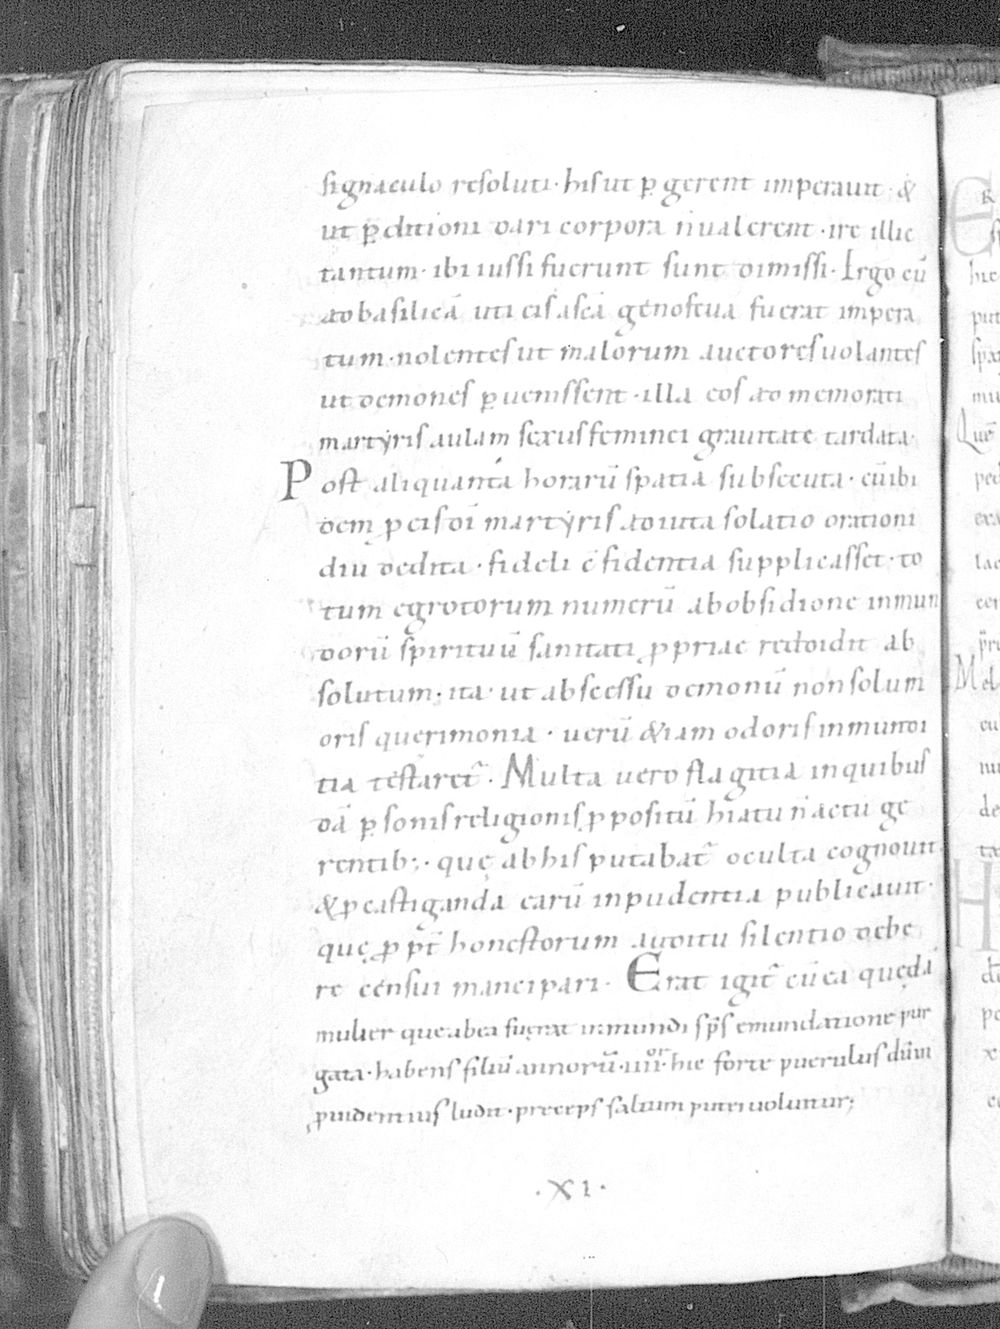 signaculo resoluti · his ut ꝑgerent imperauit · &
ut ꝑditioni dari corpora n̄ ualerent · ire illic
tantum · ibi iussi fuerunt sunt dimissi · Ergo cū
ad basilicā uti eis a scā genofeua fuerat impera
tum · nolentes ut malorum auctores uolantes
ut demones ꝑuenissent · illa eos ad memorati
martyris aulam sexus feminei grauitate tardata ·
Post aliquanta horarū spatia subsecuta · cū ibi
dem p̱ eis dni martyris adiuta solatio orationi
diu dedita · fideli c̄fidentia supplicasset · to
tum egrotorum numerū ab obsidione inmun
dorū spirituū sanitati ꝓpriae reddidit ab
solutum · ita ut abscessu demonū non solum
oris querimonia · uerū &iam odoris inmundi
tia testaret᷑ · Multa uero flagitia in quibus
dā ꝑsonis religionis ꝓpositū hiatu n̄ actu ge
rentib; · quę ab his putabat᷑ oculta cognouit
& ꝓ castiganda earū inpudentia publicauit ·
quę honestorum auditu silentio debe
re censui mancipari · Erat igit᷑ cū ea quędā
mulier que ab ea fuerat inmundi sps̄ emundatione pur
gata · habens filiū annorū · iiiior · hic forte puerulus dūm
ludit · preceps saltum putei uoluitur;
· XI ·